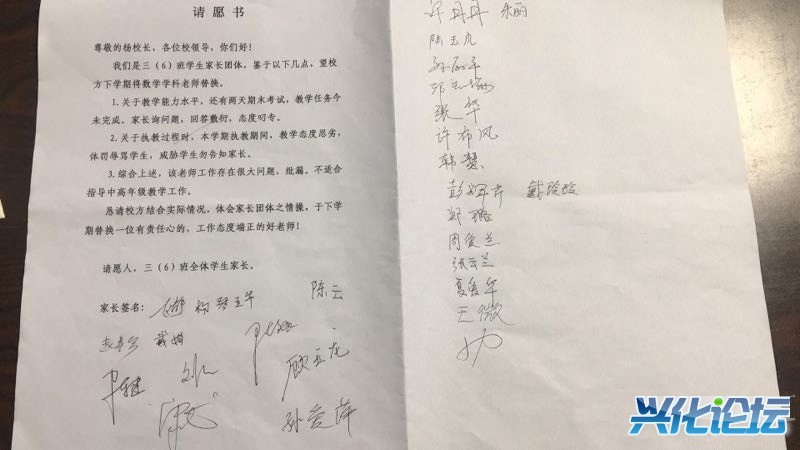 请愿书
尊敬的杨校长，各位校领导，你们好！
我们是三（6）班学生家长团体，鉴于以下几点，望校
方下学期将数学学科老师替换。
1.关于教学能力水平，还有两天期末考试，教学任务今
未完成。家长询问题，回答敷衍，态度叼专。
2.关于执教过程时，本学期执教期间，教学态度恶劣，
体罚辱骂学生，威胁学生勿告知家长。
3.综合上述，该老师工作存在很大问题，批漏。不适合
指导中高年级教学工作。
恳请校方结合实际情况，体会家长团体之情操，于下学
期替换一位有责任心的，工作态度端正的好老师！
请愿人，三（6）班全体学生家长。
家长签名：
陈云
戴娟
顾玉龙
孙爱萍
许丹丹 朱丽
陆玉虎
张华
许布风
韩慧
戴玲玲
郑璐
周俊兰
张云兰
王微
兴化论坛